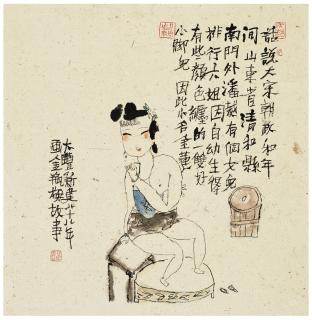 話說大宋朝政和年
間山東省清和縣
南門外潘裁有個女兒
排行六姐因自幼生得
有些顏色纏的一雙好
小腳兒因此小名金蓮
畫金瓶梅故事